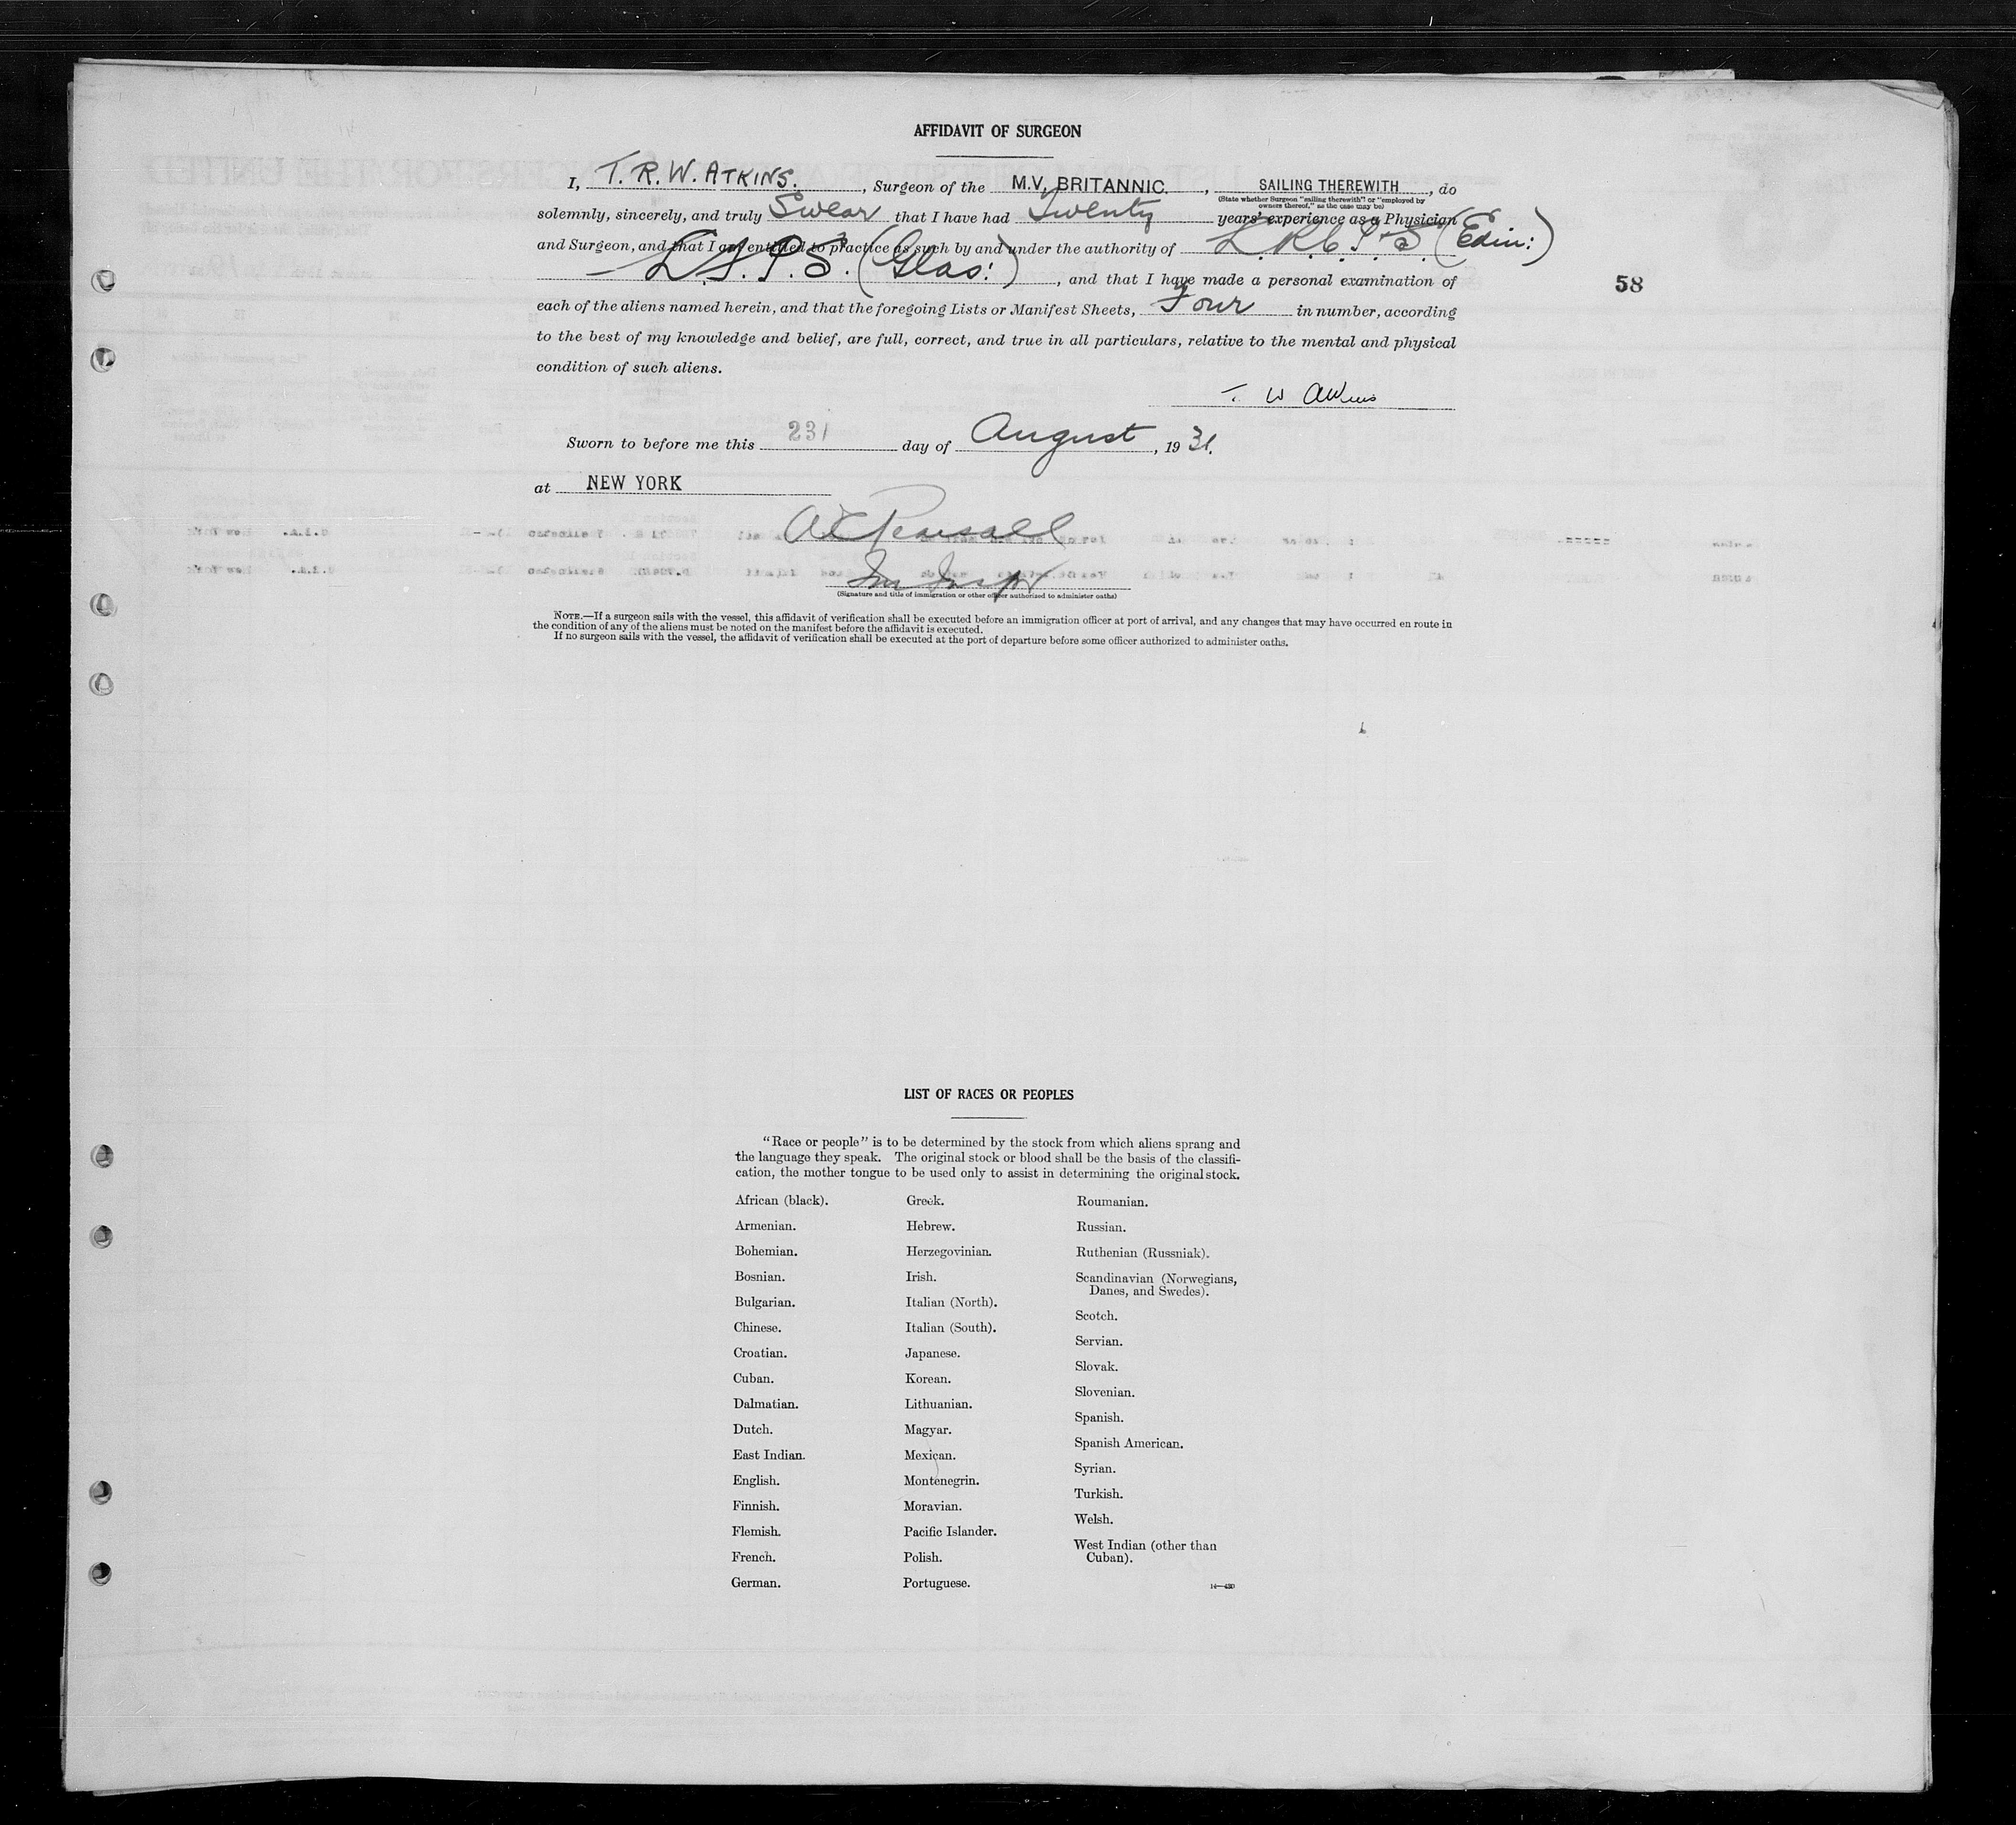 AFFIDAVIT OF SURGEON
I, T. R. W. ATKINS., Surgeon of the M.V. BRITANNIC., SAILING THEREWITH, do
(State whether Surgeon "sailing therewith" or "employed by
owners thereof," as the case may be)
solemnly, sincerely, and truly Swear that I have had Twenty years' experience as a Physician
and Surgeon, and that I am entitled to practice as such by and under the authority of L.R.C.P.&S. (Edin:)
L.F.P.S. (Glas:), and that I have made a personal examination of
58
each of the aliens named herein, and that the foregoing Lists or Manifest Sheets, Four in number, according
to the best of my knowledge and belief, are full, correct, and true in all particulars, relative to the mental and physical
condition of such aliens.
T. W Atkins
Sworn to before me this 231 day of August, 1931.
at NEW YORK
(Signature and title of immigration or other officer authorized to administer oaths)
NOTE.—If a surgeon sails with the vessel, this affidavit of verification shall be executed before an immigration officer at port of arrival, and any changes that may have occurred en route in
the condition of any of the aliens must be noted on the manifest before the affidavit is executed.
If no surgeon sails with the vessel, the affidavit of verification shall be executed at the port of departure before some officer authorized to administer oaths.
LIST OF RACES OR PEOPLES
"Race or people" is to be determined by the stock from which aliens sprang and
the language they speak. The original stock or blood shall be the basis of the classifi-
cation, the mother tongue to be used only to assist in determining the original stock.
African (black).
Armenian.
Bohemian.
Bosnian.
Bulgarian.
Chinese.
Croatian.
Cuban.
Dalmatian.
Dutch.
East Indian.
English.
Finnish.
Flemish.
French.
German.
Greek.
Hebrew.
Herzegovinian.
Irish.
Italian (North).
Italian (South).
Japanese.
Korean.
Lithuanian.
Magyar.
Mexican.
Montenegrin.
Moravian.
Pacific Islander.
Polish.
Portuguese.
Roumanian.
Russian.
Ruthenian (Russniak).
Scandinavian (Norwegians,
Danes, and Swedes).
Scotch.
Servian.
Slovak.
Slovenian.
Spanish.
Spanish American.
Syrian.
Turkish.
Welsh.
West Indian (other than
Cuban).
14—430